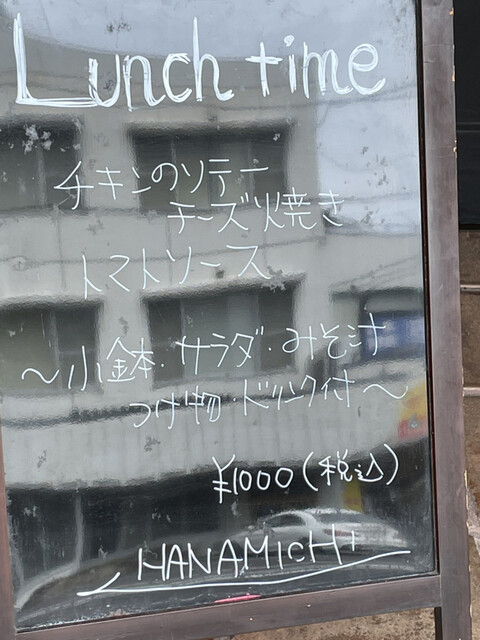 Lunch time
チキンのソテー
チーズ焼き
トマトソース
～小鉢・サラダ・みそ汁
つけ物・ドリンク付～
¥1000(税込)
HANAMICHI